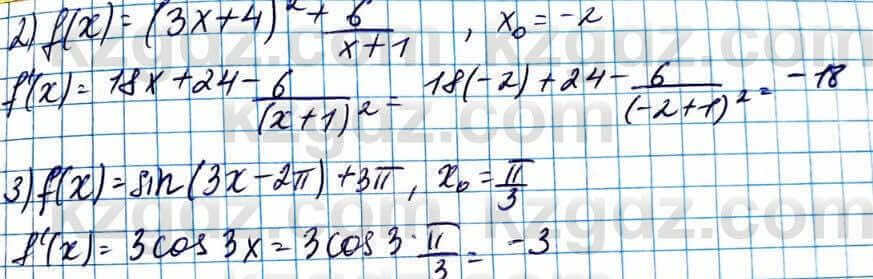 2) f(x) = (3x+4)² + 6/(x+1) , x₀ = -2
f'(x) = 18x + 24 - 6/(x+1)² = 18(-2) + 24 - 6/(-2+1)² = -18
3) f(x) = sin(3x - 2π) + 3π, x₀ = π/3
f'(x) = 3cos 3x = 3cos 3 · π/3 = -3